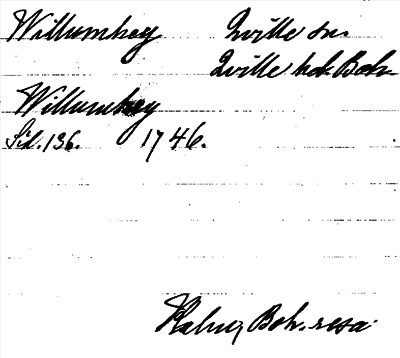 Willumhög Qville sn.
Qville hd. Boh.
Willumhög
Sid. 136. 1746.
Kalm, Boh. resa.